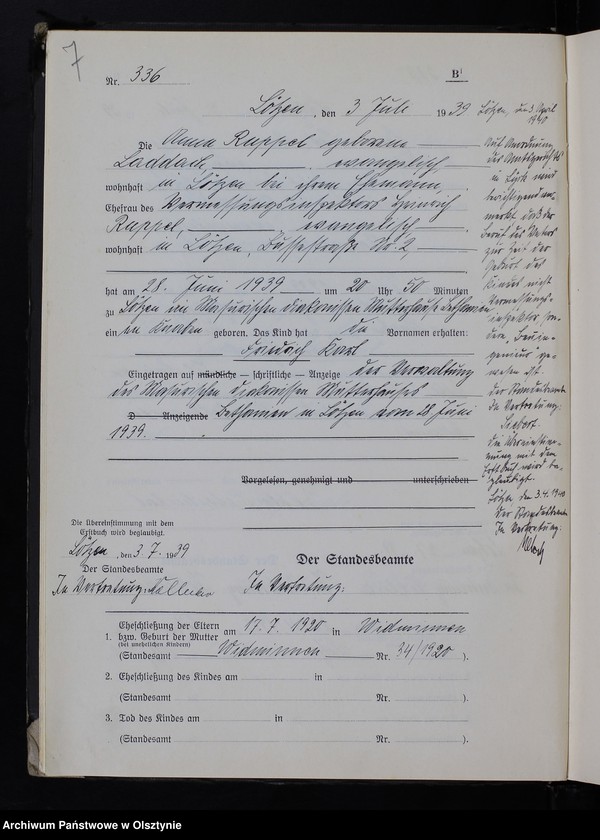 7
Nr. 336
B
Lötzen, den 3 Juli 1939
Die Anna Ruppel geborene
Laddach, evangelisch,
wohnhaft in Lötzen bei ihrem Ehemann,
Ehefrau des Vermessungsinspektors Heinrich
Ruppel, evangelisch
wohnhaft in Lötzen, Bussestraße No. 2
hat am 28. Juni 1939 um 20 Uhr 50 Minuten
zu Lötzen im Masurischen Diakonissen Mutterhause Bethanien
einen Knaben geboren. Das Kind hat die Vornamen erhalten:
Friedrich Karl
Eingetragen auf mündliche – schriftliche – Anzeige der Verwaltung
des Masurischen Diakonissen Mutterhauses
D Anzeigende Bethanien in Lötzen vom 28 Juni
1939.
Vorgelesen, genehmigt und unterschrieben
Die Übereinstimmung mit dem
Erstbuch wird beglaubigt.
Lötzen, den 3. 7. 1939
Der Standesbeamte
In Vertretung:
Der Standesbeamte
In Vertretung:
1. Eheschließung der Eltern
bzw. Geburt der Mutter am 17. 7. 1920 in Widminnen
(bei unehelichen Kindern)
(Standesamt Widminnen Nr. 34/1920).
2. Eheschließung des Kindes am in
(Standesamt Nr. ).
3. Tod des Kindes am in
(Standesamt Nr. ).
Lötzen, den 3. April
1940
Auf Anordnung
des Amtsgerichts
in Lyck wird
berichtigend ver-
merkt daß der
Beruf des Vaters
zur Zeit der
Geburt des
Kindes nicht
Vermessungs-
inspektor son-
dern, Bauin-
genieur ge-
wesen ist
Der Standesbeamte
In Vertretung:
Siebert.
Die Übereinstim-
mung mit dem
Erstbuch wird be-
glaubigt.
Lötzen den 3.4.1940
Der Standesbeamte
In Vertretung:
Archiwum Państwowe w Olsztynie